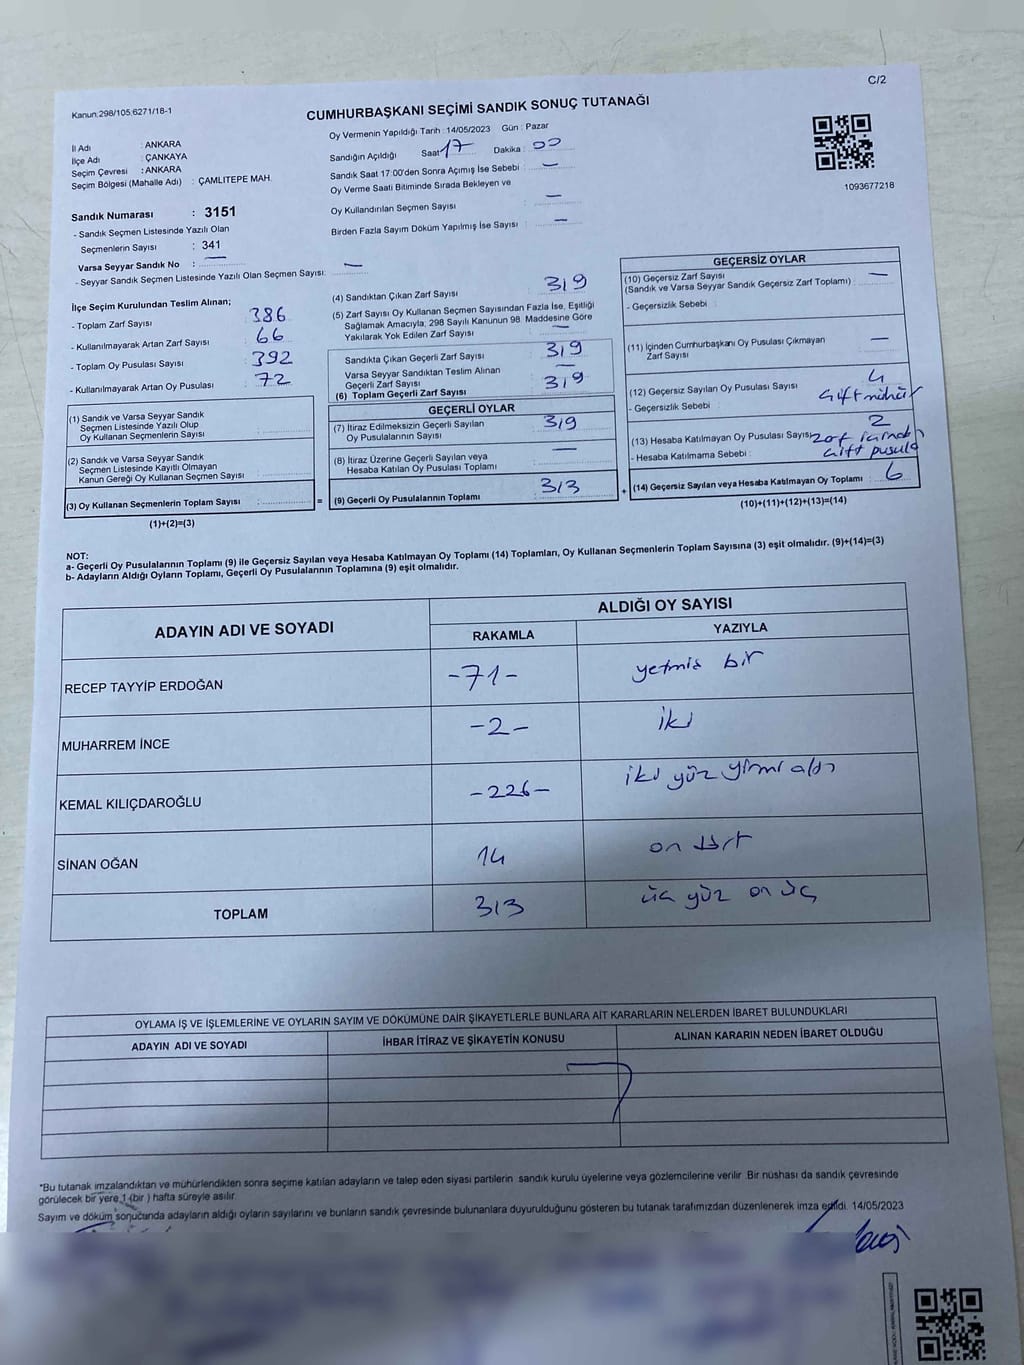 C/2
Kanun:298/105;6271/18-1
CUMHURBAŞKANI SEÇİMİ SANDIK SONUÇ TUTANAĞI
İl Adı : ANKARA
İlçe Adı : ÇANKAYA
Seçim Çevresi : ANKARA
Seçim Bölgesi (Mahalle Adı) : ÇAMLITEPE MAH.
Sandık Numarası : 3151
- Sandık Seçmen Listesinde Yazılı Olan
Seçmenlerin Sayısı : 341
Varsa Seyyar Sandık No : —
- Seyyar Sandık Seçmen Listesinde Yazılı Olan Seçmen Sayısı: —
Oy Vermenin Yapıldığı Tarih : 14/05/2023 Gün : Pazar
Sandığın Açıldığı Saat 17 Dakika : 00
Sandık Saat 17:00'den Sonra Açımış İse Sebebi : —
Oy Verme Saati Bitiminde Sırada Bekleyen ve
Oy Kullandırılan Seçmen Sayısı : —
Birden Fazla Sayım Döküm Yapılmış İse Sayısı : —
1093677218
İlçe Seçim Kurulundan Teslim Alınan;
- Toplam Zarf Sayısı 386
- Kullanılmayarak Artan Zarf Sayısı 66
- Toplam Oy Pusulası Sayısı 392
- Kullanılmayarak Artan Oy Pusulası 72
(1) Sandık ve Varsa Seyyar Sandık
Seçmen Listesinde Yazılı Olup
Oy Kullanan Seçmenlerin Sayısı :
(2) Sandık ve Varsa Seyyar Sandık
Seçmen Listesinde Kayıtlı Olmayan
Kanun Gereği Oy Kullanan Seçmen Sayısı :
(3) Oy Kullanan Seçmenlerin Toplam Sayısı : =
(1)+(2)=(3)
(4) Sandıktan Çıkan Zarf Sayısı : 319
(5) Zarf Sayısı Oy Kullanan Seçmen Sayısından Fazla İse, Eşitliği
Sağlamak Amacıyla, 298 Sayılı Kanunun 98. Maddesine Göre
Yakılarak Yok Edilen Zarf Sayısı : —
Sandıkta Çıkan Geçerli Zarf Sayısı : 319
Varsa Seyyar Sandıktan Teslim Alınan
Geçerli Zarf Sayısı : —
(6) Toplam Geçerli Zarf Sayısı : 319
GEÇERLİ OYLAR
(7) İtiraz Edilmeksizin Geçerli Sayılan
Oy Pusulalarının Sayısı : 319
(8) İtiraz Üzerine Geçerli Sayılan veya
Hesaba Katılan Oy Pusulası Toplamı : —
(9) Geçerli Oy Pusulalarının Toplamı : 313 +
GEÇERSİZ OYLAR
(10) Geçersiz Zarf Sayısı
(Sandık ve Varsa Seyyar Sandık Geçersiz Zarf Toplamı) : —
- Geçersizlik Sebebi :
(11) İçinden Cumhurbaşkanı Oy Pusulası Çıkmayan
Zarf Sayısı : —
(12) Geçersiz Sayılan Oy Pusulası Sayısı : 4
- Geçersizlik Sebebi : çift mühür
(13) Hesaba Katılmayan Oy Pusulası Sayısı : 2
- Hesaba Katılmama Sebebi : zarf içinde
çift pusula
(14) Geçersiz Sayılan veya Hesaba Katılmayan Oy Toplamı : 6
(10)+(11)+(12)+(13)=(14)
NOT:
a- Geçerli Oy Pusulalarının Toplamı (9) ile Geçersiz Sayılan veya Hesaba Katılmayan Oy Toplamı (14) Toplamları, Oy Kullanan Seçmenlerin Toplam Sayısına (3) eşit olmalıdır. (9)+(14)=(3)
b- Adayların Aldığı Oyların Toplamı, Geçerli Oy Pusulalarının Toplamına (9) eşit olmalıdır.
ADAYIN ADI VE SOYADI
ALDIĞI OY SAYISI
RAKAMLA YAZIYLA
RECEP TAYYİP ERDOĞAN -71- yetmiş bir
MUHARREM İNCE -2- iki
KEMAL KILIÇDAROĞLU -226- iki yüz yirmi altı
SİNAN OĞAN 14 on dört
TOPLAM 313 üç yüz on üç
OYLAMA İŞ VE İŞLEMLERİNE VE OYLARIN SAYIM VE DÖKÜMÜNE DAİR ŞİKAYETLERLE BUNLARA AİT KARARLARIN NELERDEN İBARET BULUNDUKLARI
ADAYIN ADI VE SOYADI İHBAR İTİRAZ VE ŞİKAYETİN KONUSU ALINAN KARARIN NEDEN İBARET OLDUĞU
*Bu tutanak imzalandıktan ve mühürlendikten sonra seçime katılan adayların ve talep eden siyasi partilerin sandık kurulu üyelerine veya gözlemcilerine verilir. Bir nüshası da sandık çevresinde
görülecek bir yere 1 (bir ) hafta süreyle asılır.
Sayım ve döküm sonucunda adayların aldığı oyların sayılarını ve bunların sandık çevresinde bulunanlara duyurulduğunu gösteren bu tutanak tarafımızdan düzenlenerek imza edildi. 14/05/2023